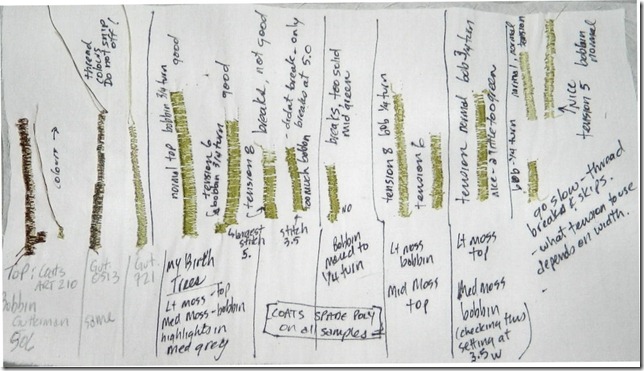 thread
colours
Do not snip
off!
colours →
Top: Coats
ART 210
Bobbin
Guterman
501
Gut.
6513
same
Gut.
921
normal top bobbin 3/4 turn
good
tension 6
bobbin 3/4 turn
good
tension 8
breaks, not good
4 largest
stitch
5.
- didnt break - only
breaks at 5.0
too much bobbin
stitch
3.5
breaks, too solid
mid green
NO
tension 8 bob 1/4 turn
tension 6
tension normal bob 3/4 turn
nice - a little too green
bob 1/4 turn
tension
normal, normal
nice
tension 5
bobbin
normal
go slow - thread
breaks & skips.
- what tension to use
depends on width.
my Birch
Trees
Lt moss - top
med moss - bobbin
highlights in
med grey
COATS SPADE POLY
on all samples
Bobbin
moved to
1/4 turn
Lt moss
bobbin
Mid Moss
top
Lt moss
top
Med moss
bobbin
(checking this
setting at
3.5 w